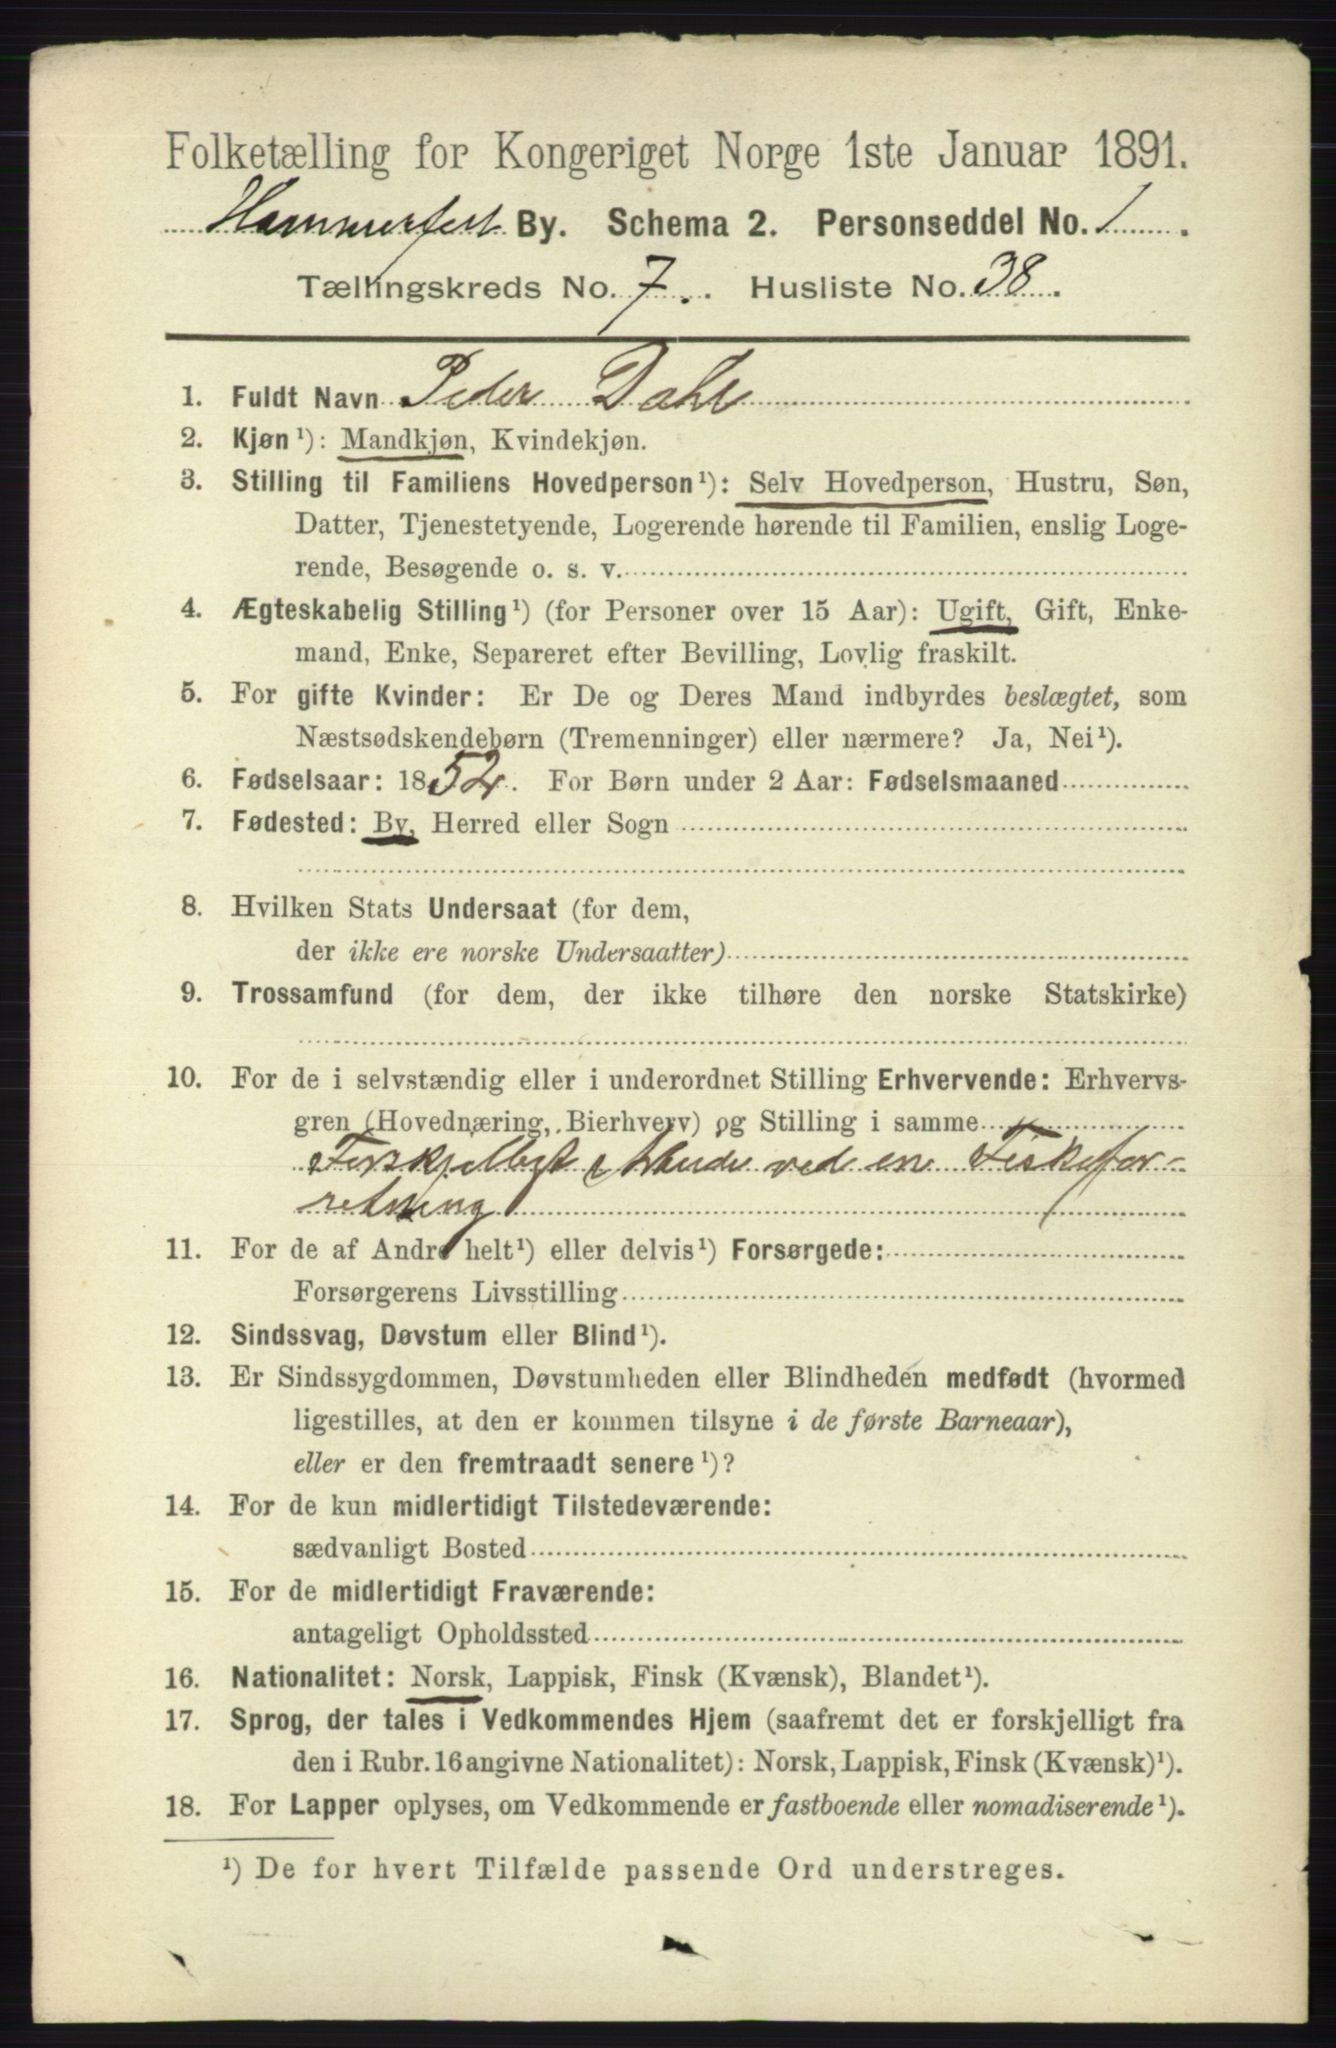 Folketælling for Kongeriget Norge 1ste Januar 1891.
Hammerfest By. Schema 2. Personseddel No. 1.
Tællingskreds No. 7. Husliste No. 38.
1. Fuldt Navn Peder Dahl
2. Kjøn¹): Mandkjøn, Kvindekjøn.
3. Stilling til Familiens Hovedperson¹): Selv Hovedperson, Hustru, Søn,
Datter, Tjenestetyende, Logerende hørende til Familien, enslig Loge-
rende, Besøgende o. s. v.
4. Ægteskabelig Stilling¹) (for Personer over 15 Aar): Ugift, Gift, Enke-
mand, Enke, Separeret efter Bevilling, Lovlig fraskilt.
5. For gifte Kvinder: Er De og Deres Mand indbyrdes beslægtet, som
Næstsødskendebørn (Tremenninger) eller nærmere? Ja, Nei¹).
6. Fødselsaar: 1852. For Børn under 2 Aar: Fødselsmaaned
7. Fødested: By, Herred eller Sogn
8. Hvilken Stats Undersaat (for dem,
der ikke ere norske Undersaatter)
9. Trossamfund (for dem, der ikke tilhøre den norske Statskirke)
10. For de i selvstændig eller i underordnet Stilling Erhvervende: Erhvervs-
gren (Hovednæring, Bierhverv) og Stilling i samme
Forskjelligt Arbeide ved en Fiskefor-
retning
11. For de af Andre helt¹) eller delvis¹) Forsørgede:
Forsørgerens Livsstilling
12. Sindssvag, Døvstum eller Blind¹).
13. Er Sindssygdommen, Døvstumheden eller Blindheden medfødt (hvormed
ligestilles, at den er kommen tilsyne i de første Barneaar),
eller er den fremtraadt senere¹)?
14. For de kun midlertidigt Tilstedeværende:
sædvanligt Bosted
15. For de midlertidigt Fraværende:
antageligt Opholdssted
16. Nationalitet: Norsk, Lappisk, Finsk (Kvænsk), Blandet¹).
17. Sprog, der tales i Vedkommendes Hjem (saafremt det er forskjelligt fra
den i Rubr. 16 angivne Nationalitet): Norsk, Lappisk, Finsk (Kvænsk)¹).
18. For Lapper oplyses, om Vedkommende er fastboende eller nomadiserende¹).
¹) De for hvert Tilfælde passende Ord understreges.